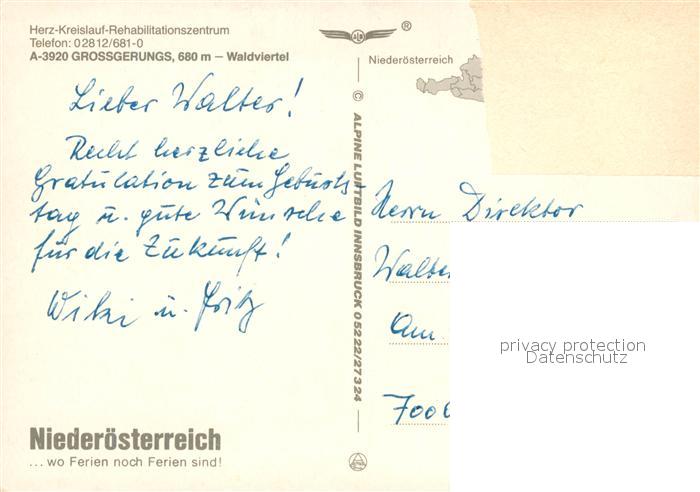 Herz-Kreislauf-Rehabilitationszentrum
Telefon: 02812/681-0
A-3920 GROSSGERUNGS, 680 m – Waldviertel
Lieber Walter!
Recht herzliche
Gratulation zum Geburts-
tag u. gute Wünsche
für die Zukunft!
u. Fritz
Niederösterreich
... wo Ferien noch Ferien sind!
®
Niederösterreich
© ALPINE LUFTBILD INNSBRUCK 05222/27324
Herrn Direktor
Walter
Am
700
privacy protection
Datenschutz